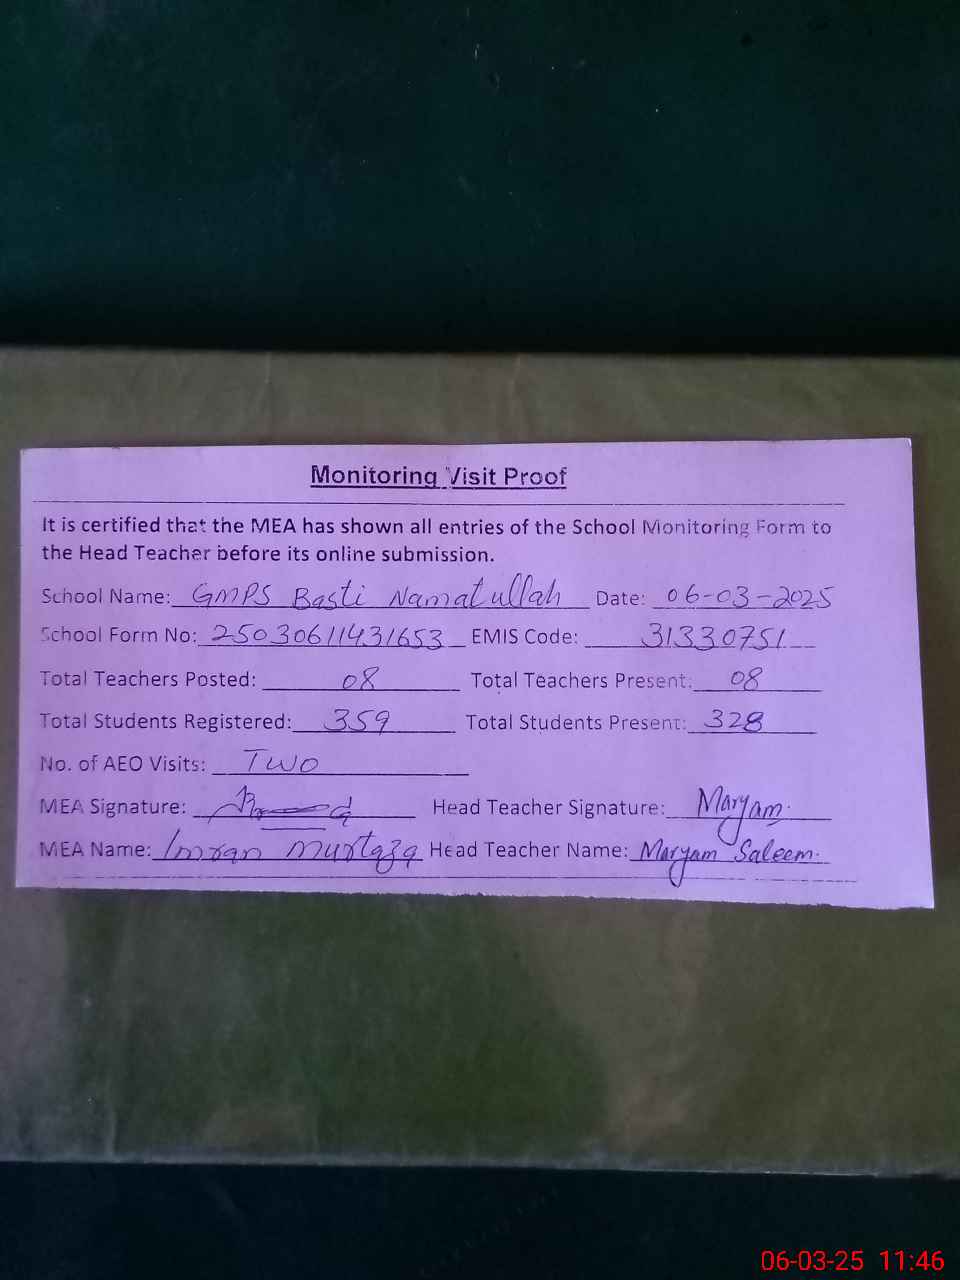 Monitoring Visit Proof
It is certified that the MEA has shown all entries of the School Monitoring Form to
the Head Teacher before its online submission.
School Name: GMPS Basti Namatullah Date: 06-03-2025
School Form No: 25030611431653 EMIS Code: 31330751
Total Teachers Posted: 08 Total Teachers Present: 08
Total Students Registered: 359 Total Students Present: 328
No. of AEO Visits: Two
MEA Signature: Head Teacher Signature: Maryam.
MEA Name: Imran Murtaza Head Teacher Name: Maryam Saleem.
06-03-25 11:46